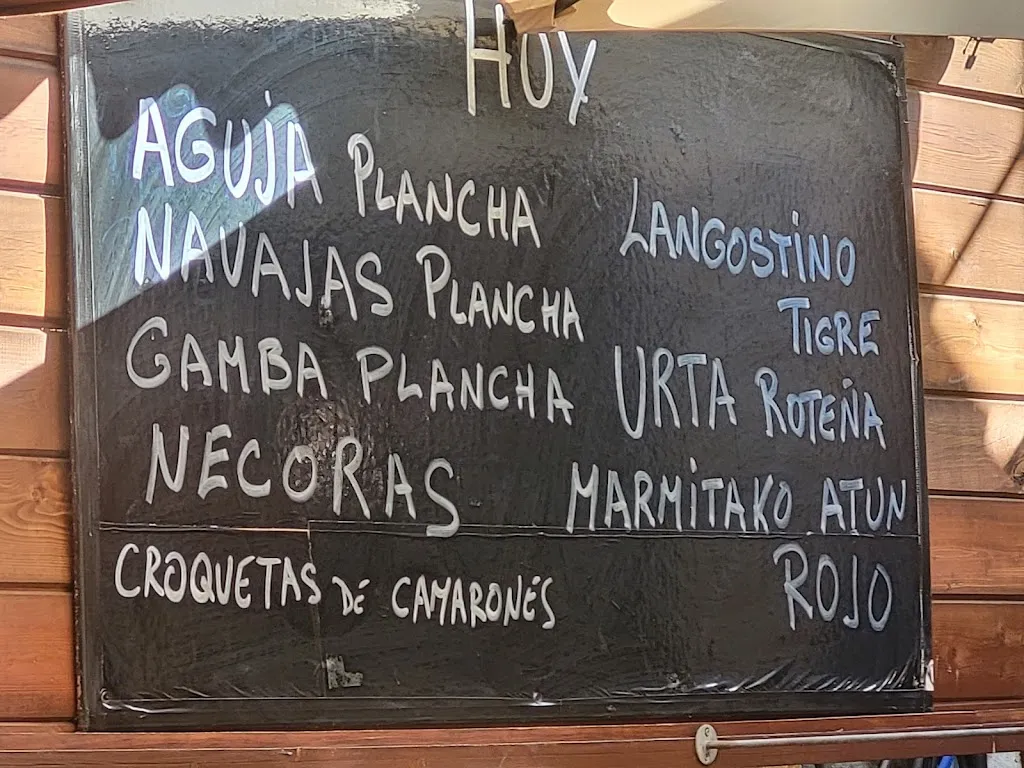 HOY
AGUJA PLANCHA
NAVAJAS PLANCHA
GAMBA PLANCHA
NECORAS
CROQUETAS DE CAMARONES
LANGOSTINO
TIGRE
URTA ROTEÑA
MARMITAKO ATUN
ROJO